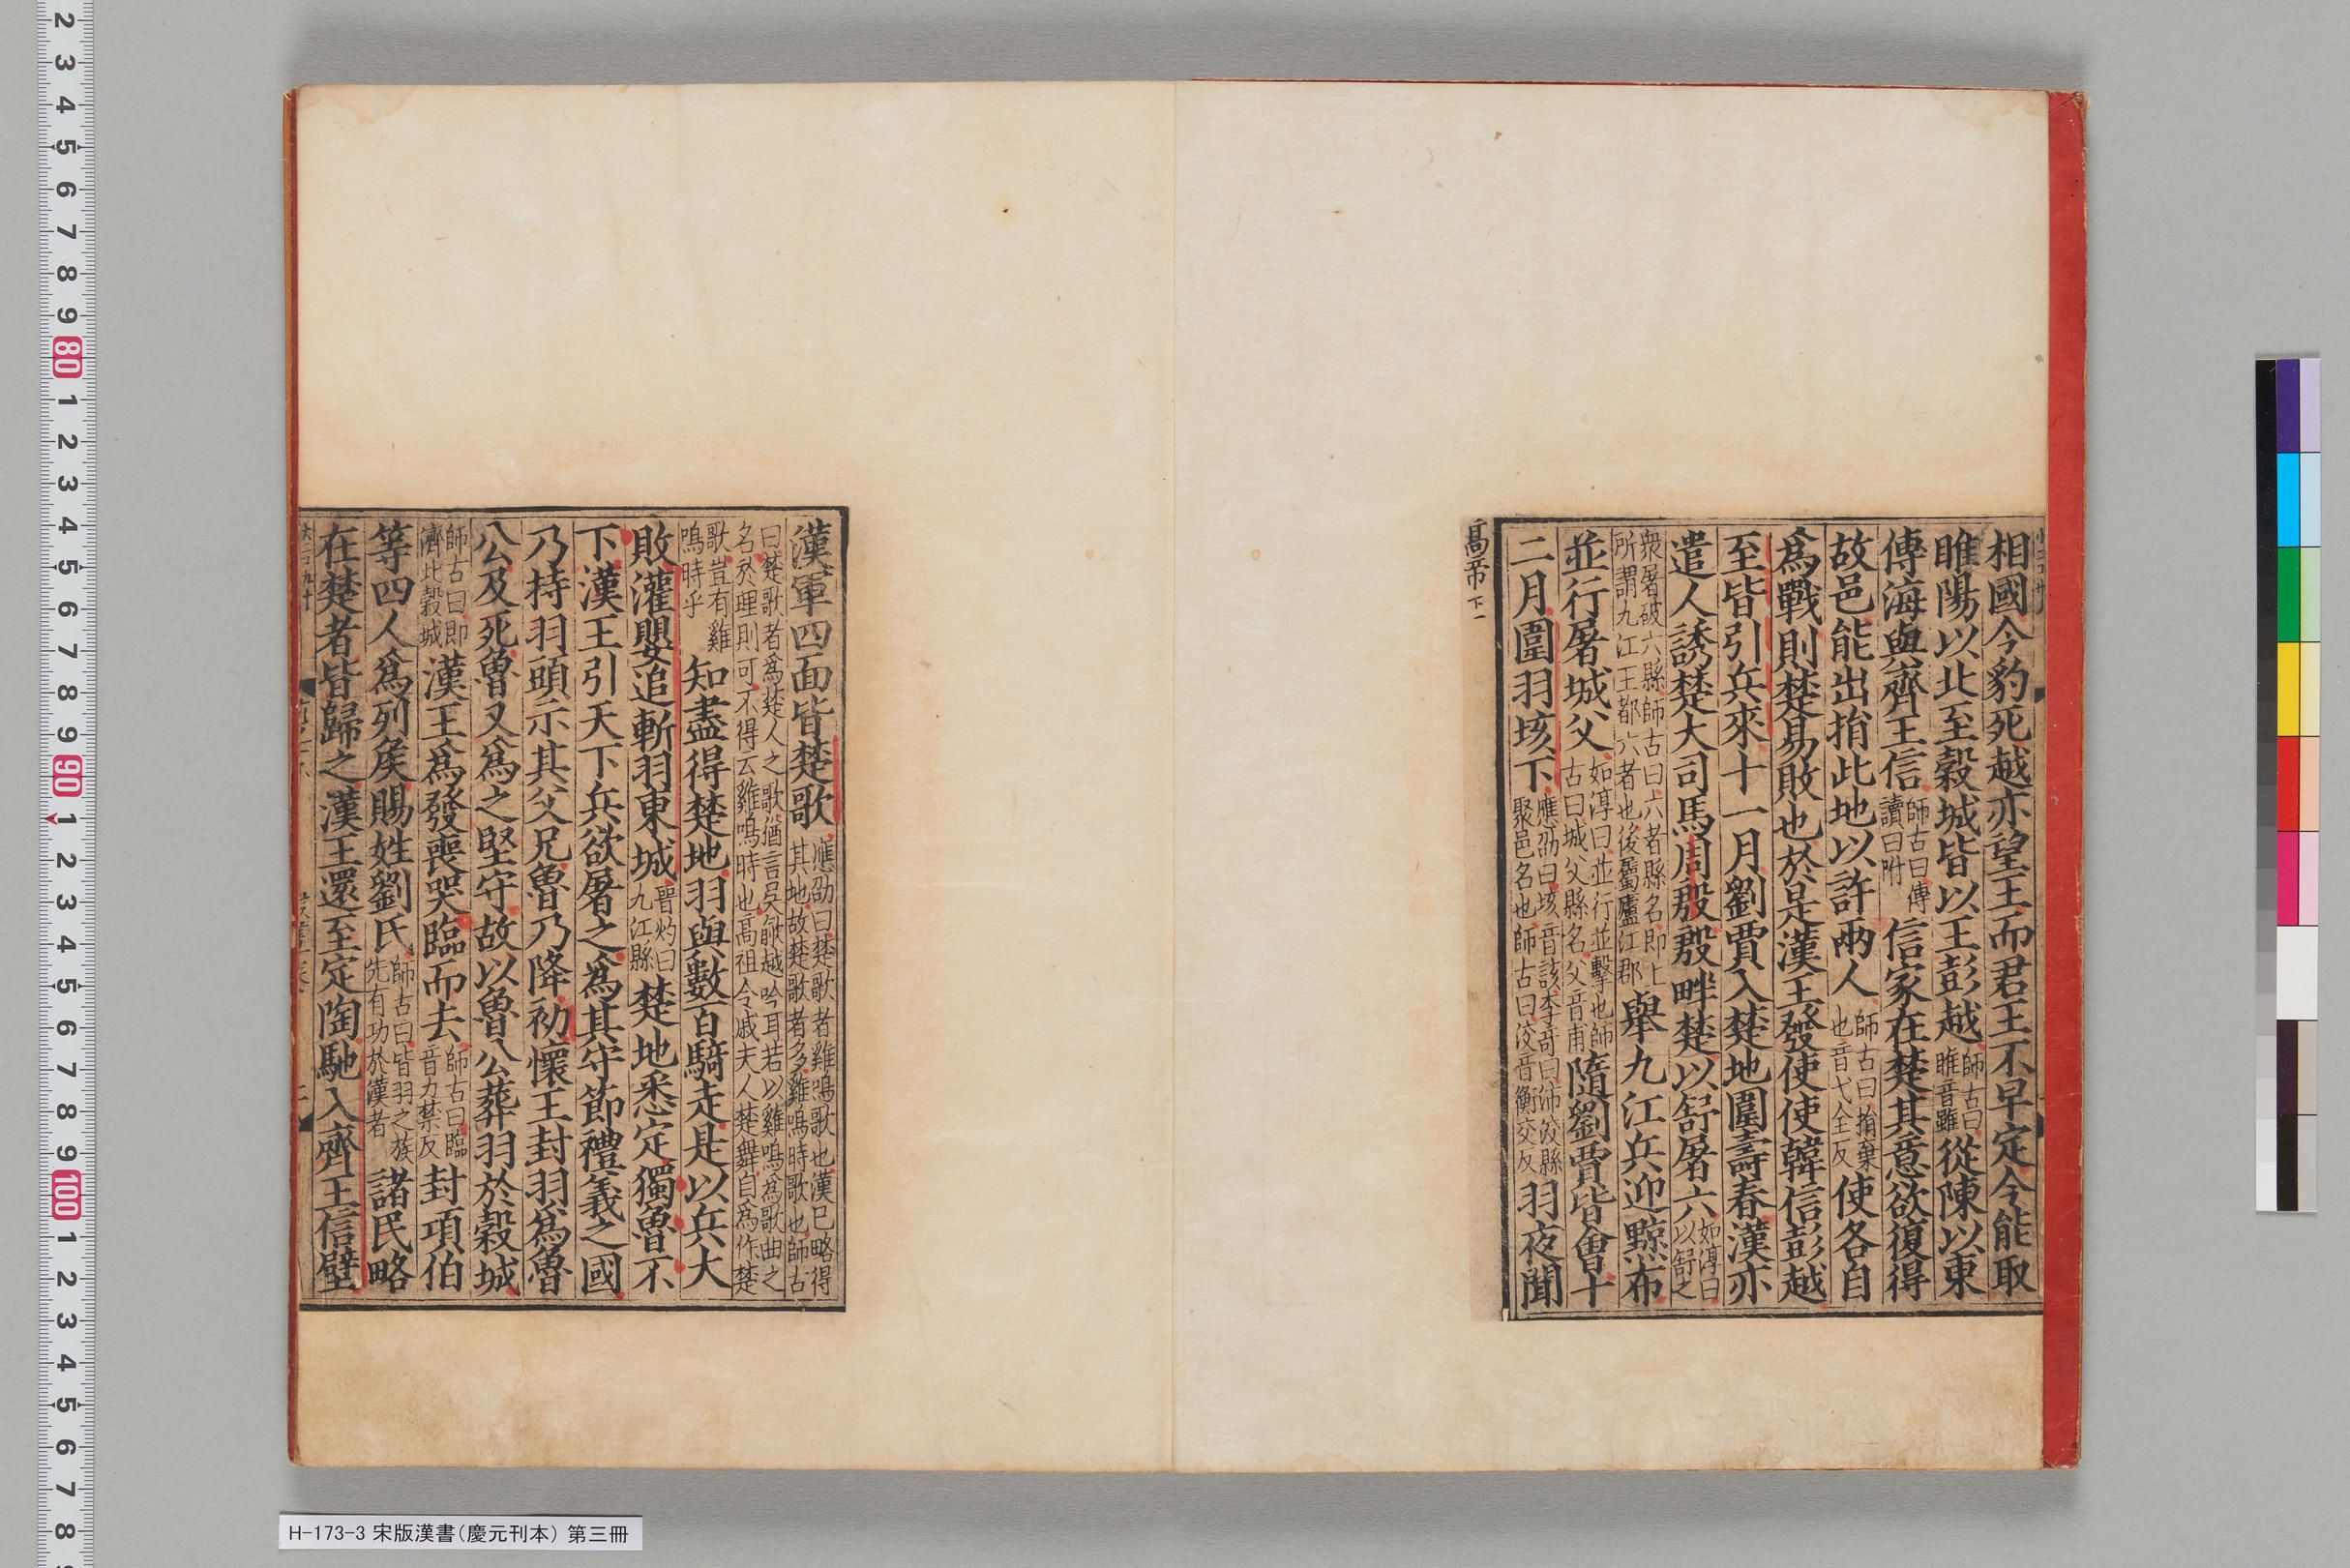 相國今豹死越亦望王而君王不早定今能取
睢陽以北至穀城皆以王彭越師古曰睢音雖從陳以東
傳海與齊王信師古曰傅讀曰附信家在楚其意欲復得
故邑能出捐此地以許兩人師古曰捐棄也音弋全反使各自
爲戰則楚易敗也於是漢王發使使韓信彭越
至皆引兵來十一月劉賈入楚地圍壽春漢亦
遣人誘楚大司馬周殷殷畔楚以舒屠六如淳曰以舒之
衆屠破六縣師古曰六者縣名即上所謂九江王都六者也後屬廬江郡舉九江兵迎黥布
並行屠城父如淳曰並行並擊也師古曰城父縣名父音甫隨劉賈皆會十
二月圍羽垓下應劭曰垓音該李奇曰沛洨縣聚邑名也師古曰洨音衡交反羽夜聞
高帝下一
漢軍四面皆楚歌應劭曰楚歌者雞鳴歌也漢已略得其地故楚歌者多雞鳴時歌也師古
曰楚歌者爲楚人之歌猶言吳歈越吟耳若以雞鳴爲歌曲之名於理則可不得云雞鳴時也高祖令戚夫人楚舞自爲作楚
歌豈有雞鳴時乎知盡得楚地羽與數百騎走是以兵大
敗灌嬰追斬羽東城晉灼曰九江縣楚地悉定獨魯不
下漢王引天下兵欲屠之爲其守節禮義之國
乃持羽頭示其父兄魯乃降初懷王封羽爲魯
公及死魯又爲之堅守故以魯公葬羽於穀城
師古曰即濟北穀城漢王爲發喪哭臨而去師古曰臨音力禁反封項伯
等四人爲列矦賜姓劉氏師古曰皆羽之族先有功於漢者諸民略
在楚者皆歸之漢王還至定陶馳入齊王信壁
H-173-3 宋版漢書(慶元刊本) 第三冊
2
3
4
5
6
7
8
9
80
1
2
3
4
5
6
7
8
9
90
1
2
3
4
5
6
7
8
9
100
1
2
3
4
5
6
7
8